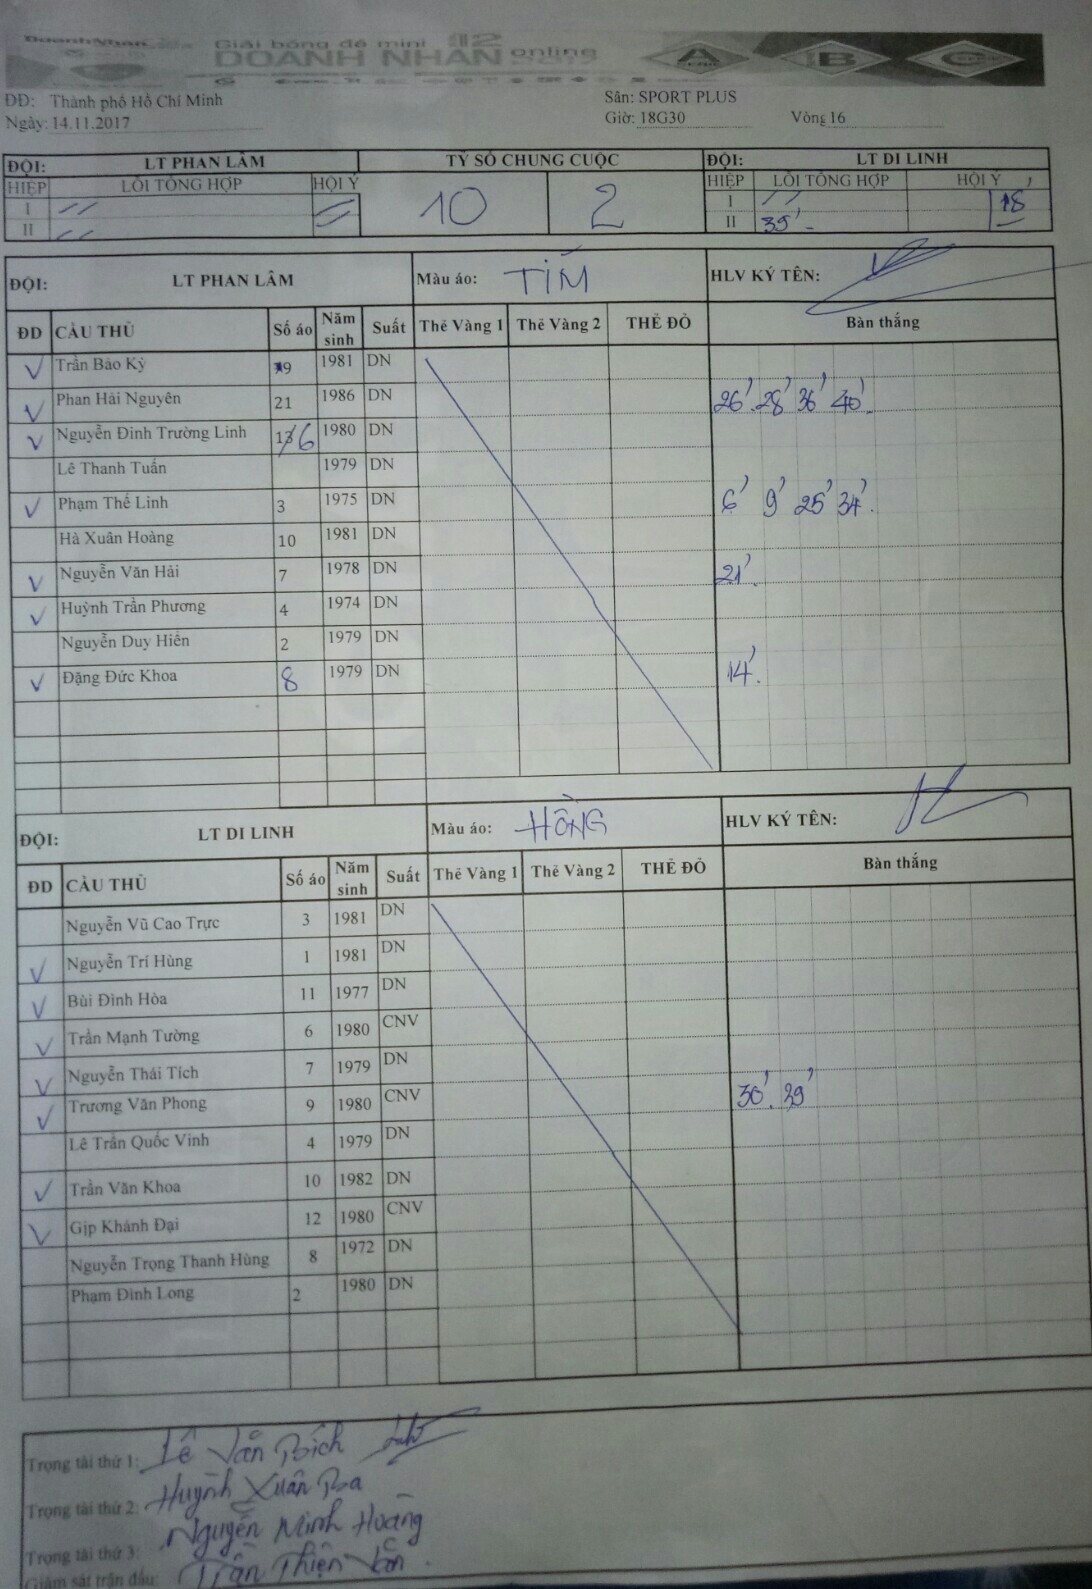 Giải bóng đá mini 12
DOANH NHÂN online
A B C
ĐĐ: Thành phố Hồ Chí Minh Sân: SPORT PLUS
Ngày: 14.11.2017 Giờ: 18G30 Vòng 16
ĐỘI: LT PHAN LÂM TỶ SỐ CHUNG CUỘC ĐỘI: LT DI LINH
HIỆP LỖI TỔNG HỢP HỘI Ý 10 2 HIỆP LỖI TỔNG HỢP HỘI Ý
I I 18'
II II 35'
ĐỘI: LT PHAN LÂM Màu áo: TÍM HLV KÝ TÊN:
ĐD CẦU THỦ Số áo Năm sinh Suất Thẻ Vàng 1 Thẻ Vàng 2 THẺ ĐỎ Bàn thắng
Trần Bảo Kỳ 9 1981 DN
Phan Hải Nguyên 21 1986 DN 26' 28' 36' 40'
Nguyễn Đình Trường Linh 13/6 1980 DN
Lê Thanh Tuấn 1979 DN
Phạm Thế Linh 3 1975 DN 6' 9' 25' 34'.
Hà Xuân Hoàng 10 1981 DN
Nguyễn Văn Hải 7 1978 DN 21'.
Huỳnh Trần Phương 4 1974 DN
Nguyễn Duy Hiển 2 1979 DN
Đặng Đức Khoa 8 1979 DN 14'.
ĐỘI: LT DI LINH Màu áo: HỒNG HLV KÝ TÊN:
ĐD CẦU THỦ Số áo Năm sinh Suất Thẻ Vàng 1 Thẻ Vàng 2 THẺ ĐỎ Bàn thắng
Nguyễn Vũ Cao Trực 3 1981 DN
Nguyễn Trí Hùng 1 1981 DN
Bùi Đình Hòa 11 1977 DN
Trần Mạnh Tường 6 1980 CNV
Nguyễn Thái Tích 7 1979 DN
Trương Văn Phong 9 1980 CNV 30'. 39'
Lê Trần Quốc Vinh 4 1979 DN
Trần Văn Khoa 10 1982 DN
Gịp Khánh Đại 12 1980 CNV
Nguyễn Trọng Thanh Hùng 8 1972 DN
Phạm Đình Long 2 1980 DN
Trọng tài thứ 1: Lê Văn Bích
Trọng tài thứ 2: Huỳnh Xuân Ba
Trọng tài thứ 3: Nguyễn Minh Hoàng
Giám sát trận đấu: Trần Thiện Văn.